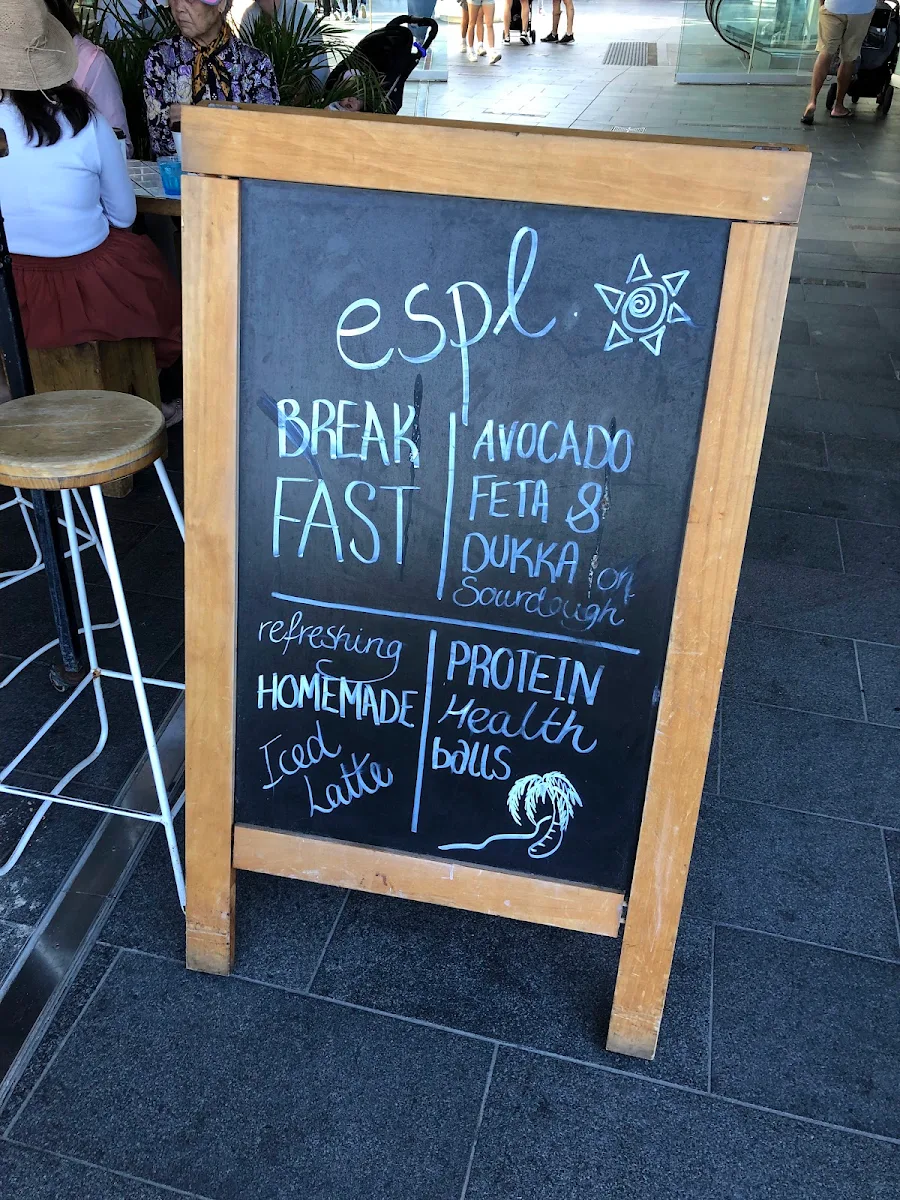 espl.
BREAK
FAST
AVOCADO
FETA &
DUKKA on
Sourdough
refreshing
HOMEMADE
Iced
Latte
PROTEIN
Health
balls